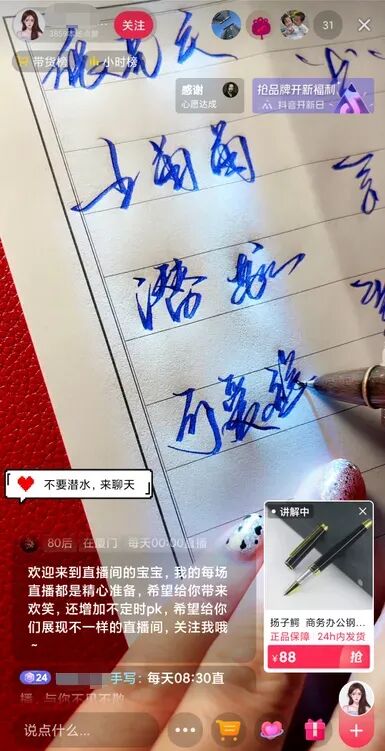 385
本场点赞
关注
31
带货榜
小时榜
感谢
心愿达成
抢品牌开新福利
抖音开新日
少甯甯
言
潜龙
可爱
不要潜水，来聊天
80后 在厦门 每天00:00直播
欢迎来到直播间的宝宝，我的每场
直播都是精心准备，希望给你带来
欢笑，还增加不定时pk，希望给你
们展现不一样的直播间，关注我哦
~
24
手写：每天08:30直
播，与你不见不散
讲解中
扬子鳄 商务办公钢...
正品保障 24h内发货
¥88 抢
说点什么...